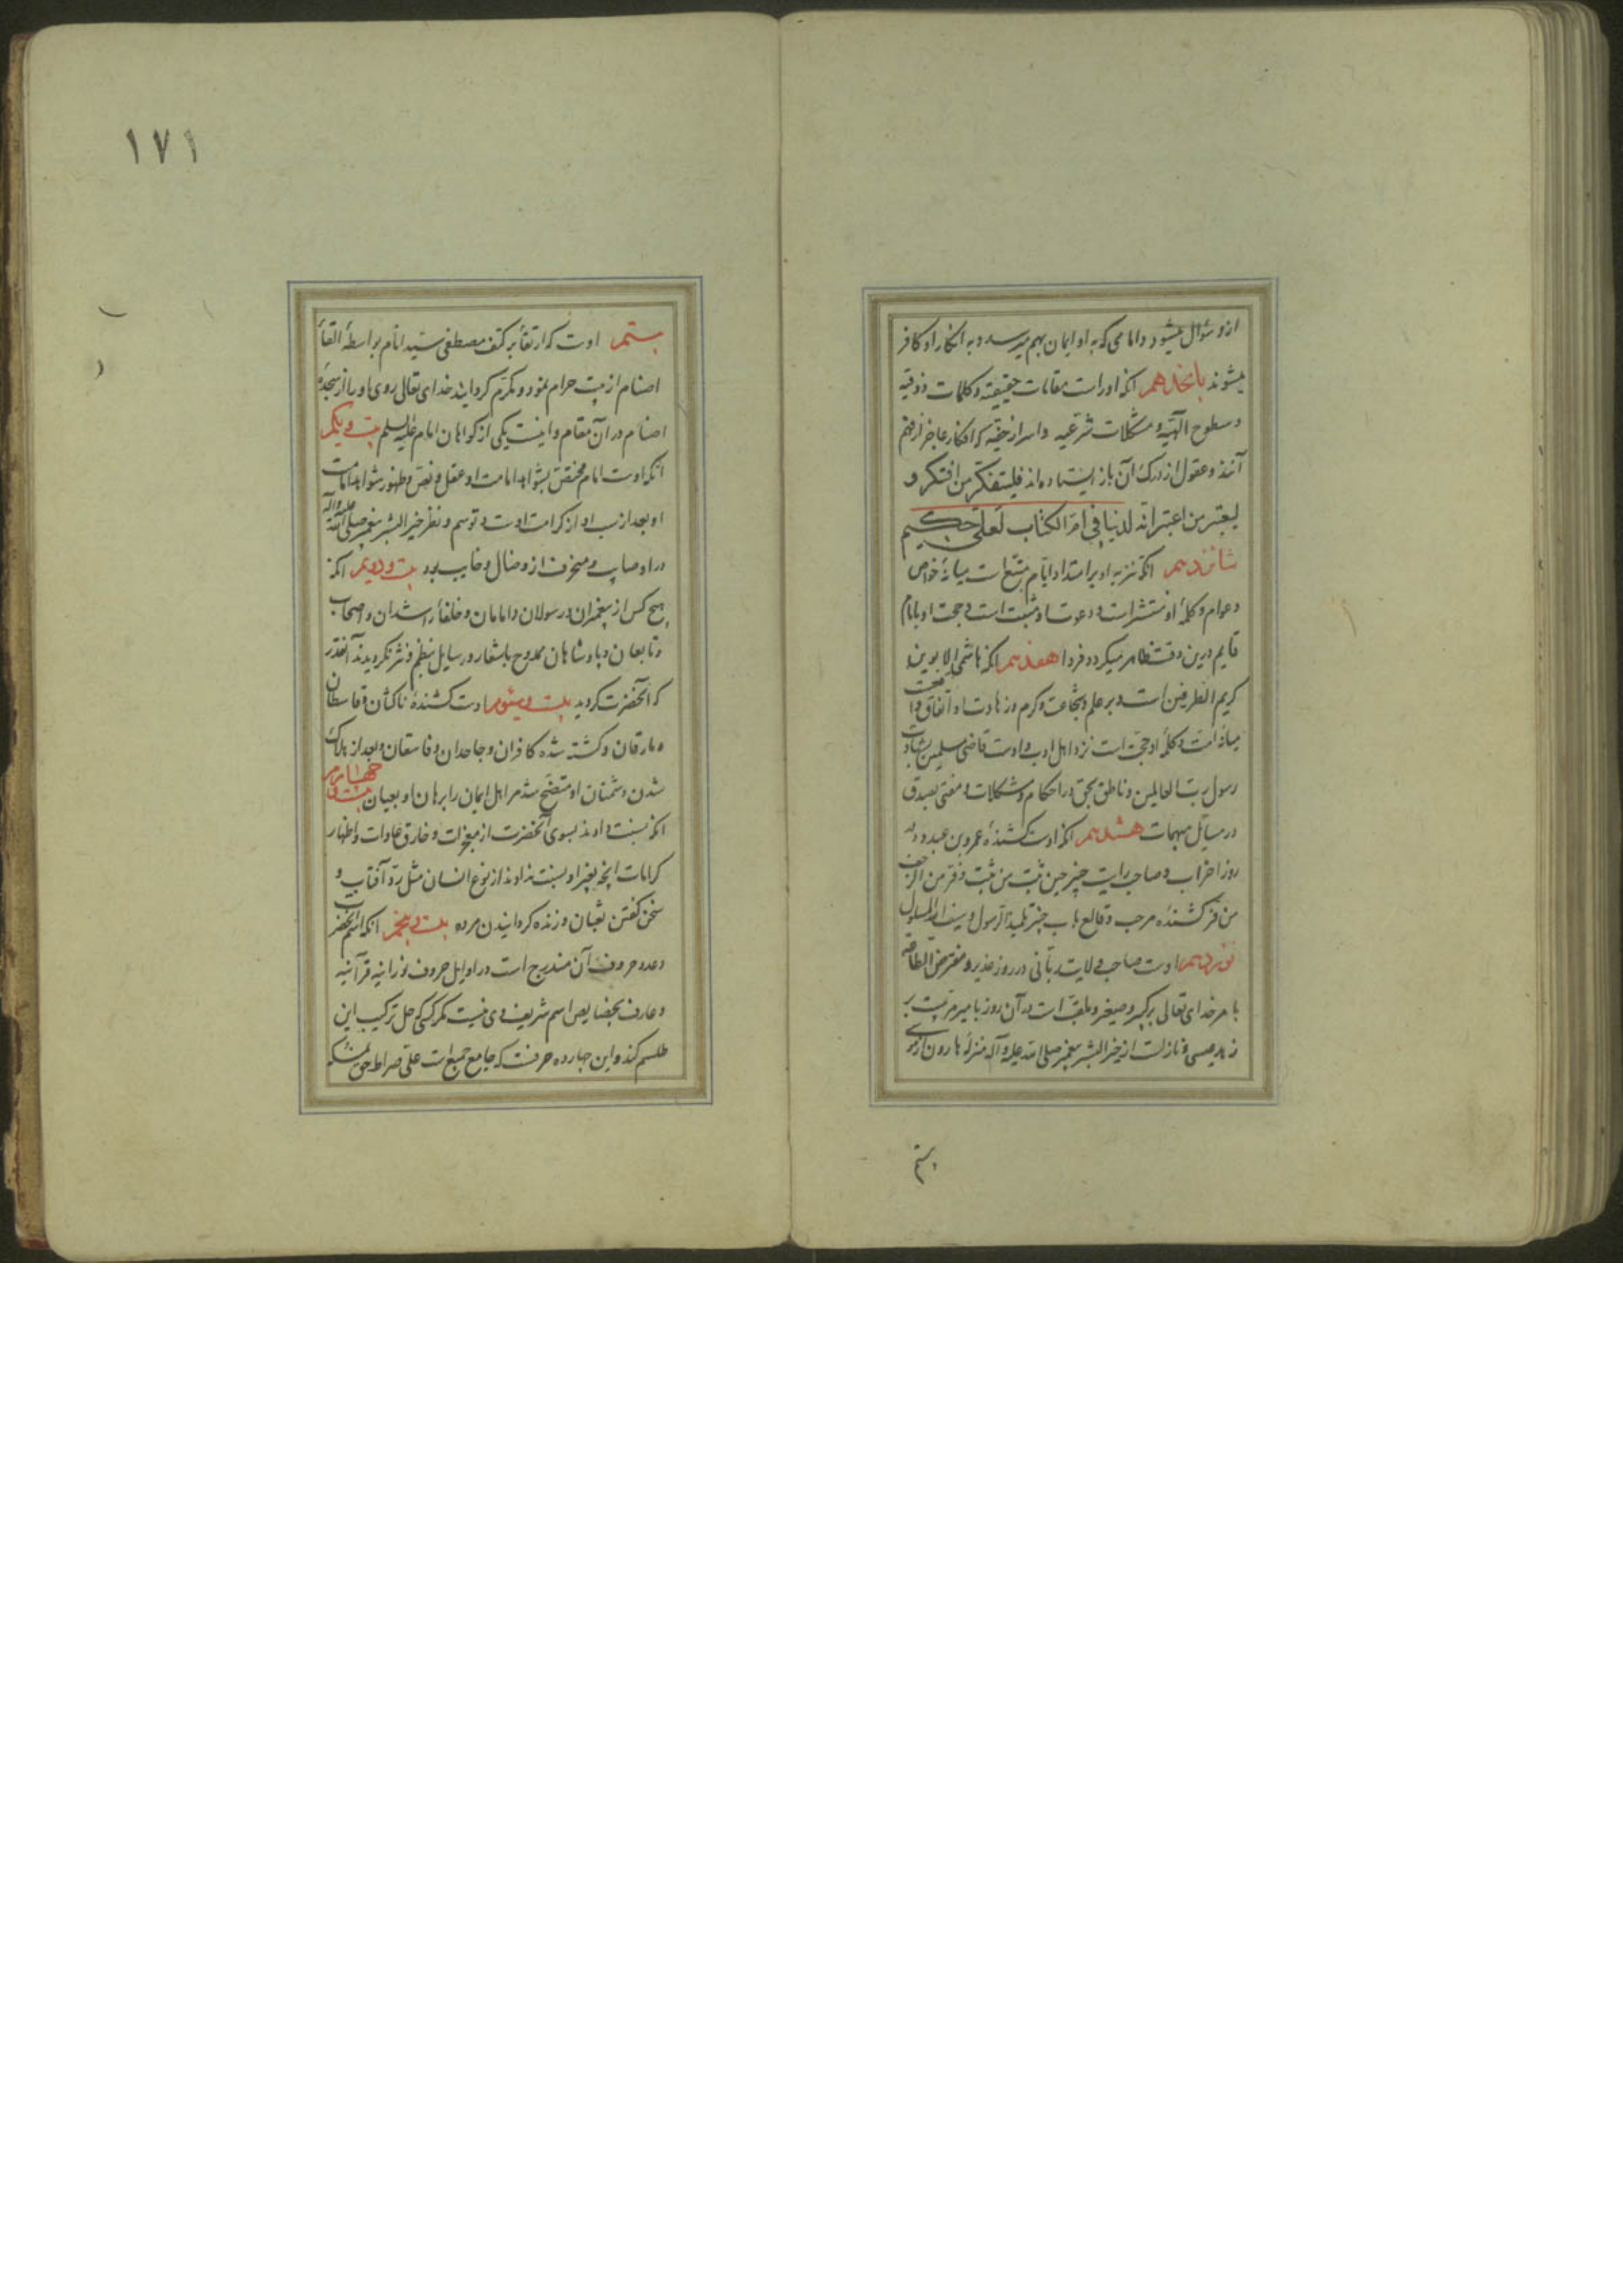 ازو سؤال میشود و امامی که به او ایمان بهم میرسد و به انکار او کافر
میشوند پانزدهم انکه او راست مقامات حقیقیه و کلمات ذوقیه
و سطوح الهیه و مشکلات شرعیه و اسرار خفیه که افکار عاجز از فهم
آنند و عقول از درک آن باز ایستاده اند فلیتفکر من افتکر و
لیعتبر من اعتبر انه لدینا فی ام الکتاب لعلی حکیم
شانزدهم انکه تنزیه او بر امتداد ایام متبع است میانهٔ خواص
و عوام و کلمهٔ او منتشر است و دعوت او مثبت است و حجت او بامام
قایم درین وقت ظاهر میکردد و فردا هفدهم انکه هاشمی الابوین و
کریم الطرفین است و بر علم و شجاعت و کرم و زهادت او اتفاق
میانه امت و کلمهٔ او حجت است نزد اهل ادب و اوست قاضی مسلمین
رسول رب العالمین و ناطق بحق در احکام و مشکلات و مفتی بصدق
در مسایل مبهمات هشدهم انکه اوست کشندهٔ عمرو بن عبدود در
روز احزاب و صاحب رایت خیبر حین ثبت من ثبت و فر من الزحف
من فر کشنده مرحب و قالع باب خیبر تلمیذ الرسول و سیف الله المسلول
نوزدهم اوست صاحب ولایت ربانی در روز غدیر و مفترض الطاعه
بامر خدای تعالی بر کبیر و صغیر و ملقب است در آن روز بامیر مرتبت بر
زهد عیسی و نازلست از خیر البشر پیغمبر صلی الله علیه و آله منزلهٔ هارون از موسی
بیستم
١٧١
بیستم اوست که ارتقأ بر کتف مصطفی سید انام بواسطهٔ القأ
اصنام از بیت حرام نمود و مکرم کردانید خدای تعالی روی او را از سجدهٔ
اصنام در آن مقام و اینست یکی از کواهان امام علیه السلم بیست و یکم
انکه اوست امام محقق بشواهد امامت او عقل و نص و ظهور شواهد امامت
او بعد از نسب او از کرامت اوست و توسم و نظر خیر البشر پیغمبر صلی الله علیه و آله
در او صایب و منحرف ازو ضال و خایب بود بیست و دویم انکه
هیچ کس از پیغمبران و رسولان و امامان و خلفأ راشدان و اصحاب
و تابعان و پادشاهان ممدوح باشعار و رسایل بنظم و نثر نکردیدند آنقدر
که آنحضرت کردید بیست و سیوم اوست کشندهٔ ناکثان و قاسطان
و مارقان و کشته شده کافران و جاحدان و فاسقان و بعد از هلاک
شدن دشمنان او متضح شد مر اهل ایمان را برهان او بعیان بیست و چهارم
انکه نسبت دادند بسوی آنحضرت از معجزات و خارق عادات و اظهار
کرامات انچه بغیر او نسبت نداوند از نوع انسان مثل رد آفتاب و
سخن کفتن ثعبان و زنده کردانیدن مرده بیست و پنجم انکه اسم آنحضرت
و عدد حروف آن مندرج است در اوایل حروف نورانیه قرآنیه
و عارف بخصایص اسم شریف وی نیست مکر کسی که حل ترکیب این
طلسم کند و این چارده حرفست که جامع جمیع است علی صراط حق نمسکه